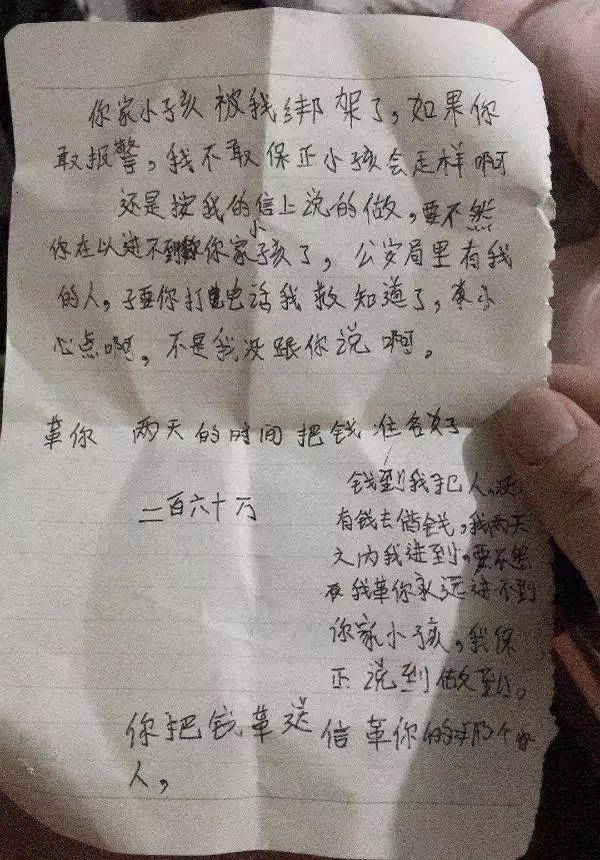 你家小孩被我绑架了,如果你
敢报警,我不敢保正小孩会怎样啊
还是按我的信上说的做,要不然
你在以进不到你家小孩了,公安局里有我
的人,要你打电话我就知道了,
心点啊,不是我没跟你说啊。
革你 两天的时间把钱准备好
二百六十万
钱到我手把人,没
有钱去借钱,我两天
之内我进到,要不然
我革你永远进不到
你家小孩,我保
正说到做到。
你把钱革送信革你的那个
人,